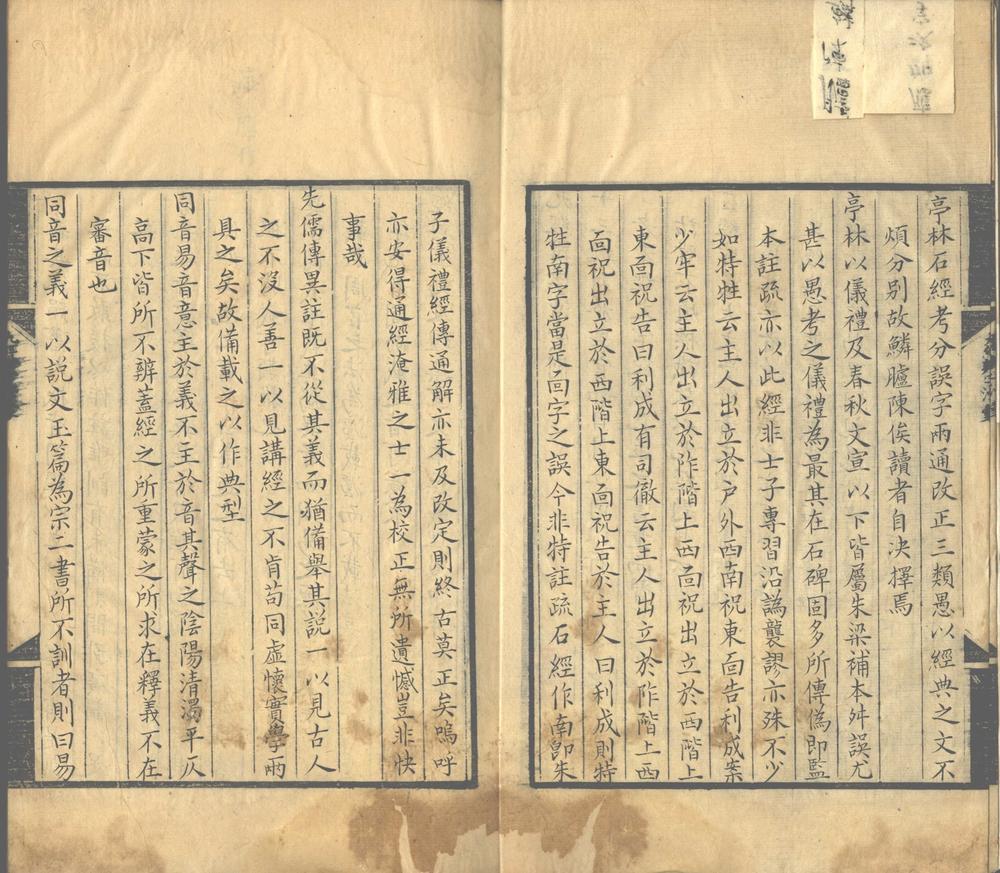 亭林石經考分誤字兩通改正三類愚以經典之文不
煩分别故鱗臚陳俟讀者自決擇焉
亭林以儀禮及春秋文宣以下皆屬朱梁補本舛誤尤
甚以愚考之儀禮為最其在石碑固多所傳偽即監
本註疏亦以此經非士子專習沿譌襲謬亦殊不少
如特牲云主人出立於户外西南祝東靣告利成案
少牢云主人出立於阼階上西靣祝出立於西階上
東靣祝告曰利成有司徹云主人出立於阼階上西
靣祝出立於西階上東靣祝告於主人曰利成則特
牲南字當是靣字之誤今非特註疏石經作南卽朱
子儀禮經傳通解亦未及改定則終古莫正矣嗚呼
亦安得通經淹雅之士一為校正無所遺憾豈非快
事哉
先儒傳異註既不從其義而猶備舉其說一以見古人
之不没人善一以見講經之不肯苟同虛懷實學兩
具之矣故備載之以作典型
同音易音意主於義不主於音其聲之陰陽清濁平仄
高下皆所不辨蓋經之所重蒙之所求在釋義不在
審音也
同音之義一以説文玉篇為宗二書所不訓者則曰易